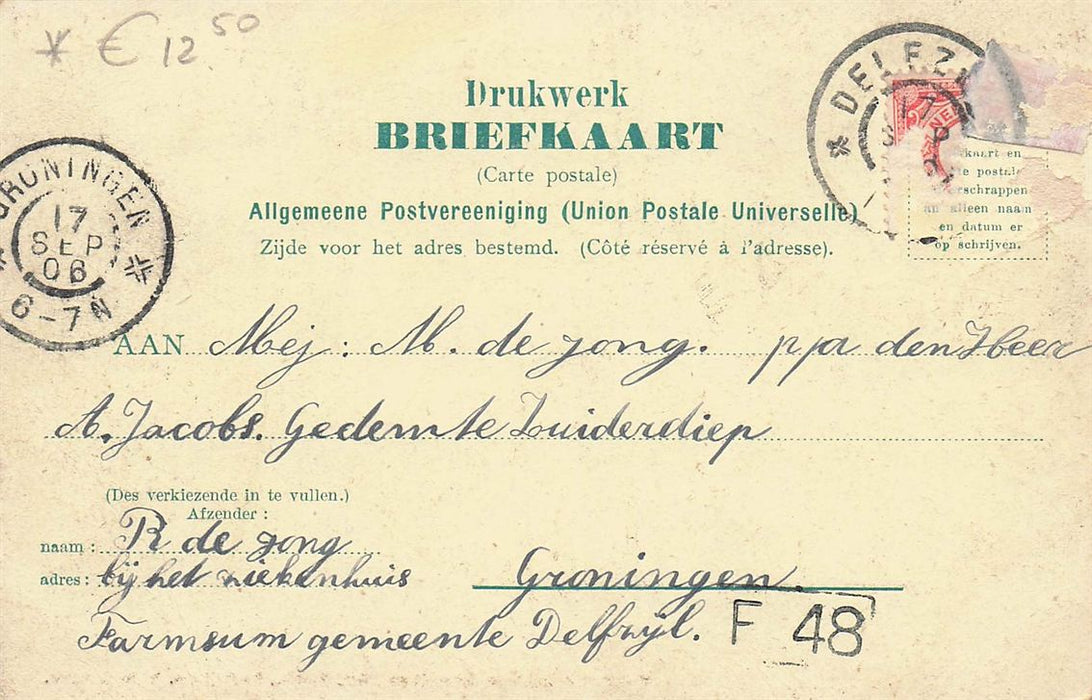 * € 12 50
Drukwerk
BRIEFKAART
(Carte postale)
Allgemeene Postvereeniging (Union Postale Universelle)
Zijde voor het adres bestemd. (Côté réservé à l'adresse).
* DELFZ
17
GRONINGEN
17
SEP
06
6-7N
kaart en
postale
schrappen
alleen naam
en datum er
op schrijven.
AAN Mej: M. de Jong. p/a den Heer
A. Jacobs. Gedemte Zuiderdiep
(Des verkiezende in te vullen.)
Afzender:
naam: R de Jong
adres: bij het ziekenhuis
Groningen.
Farmsum gemeente Delfzyl.
F 48